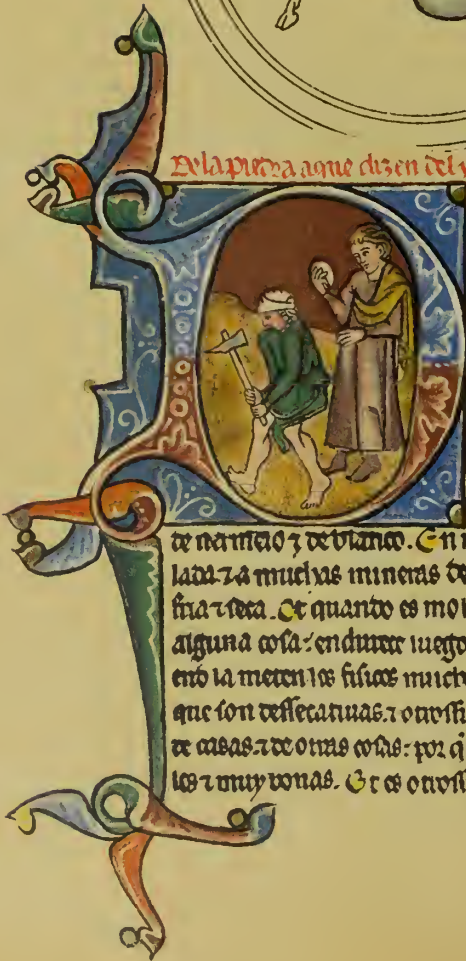 De la piedra aque dizen del y
de uermeio ⁊ de blanco. En
lada. ⁊ a muchas mineras de
fria ⁊ seca. Et quando es mol
alguna cosa: endurece luego
la meten los fisicos much
que son dessecatiuas. ⁊ otrossi
de casas. ⁊ de otras cosas: por q̄
les ⁊ muy bonas. Et es otross